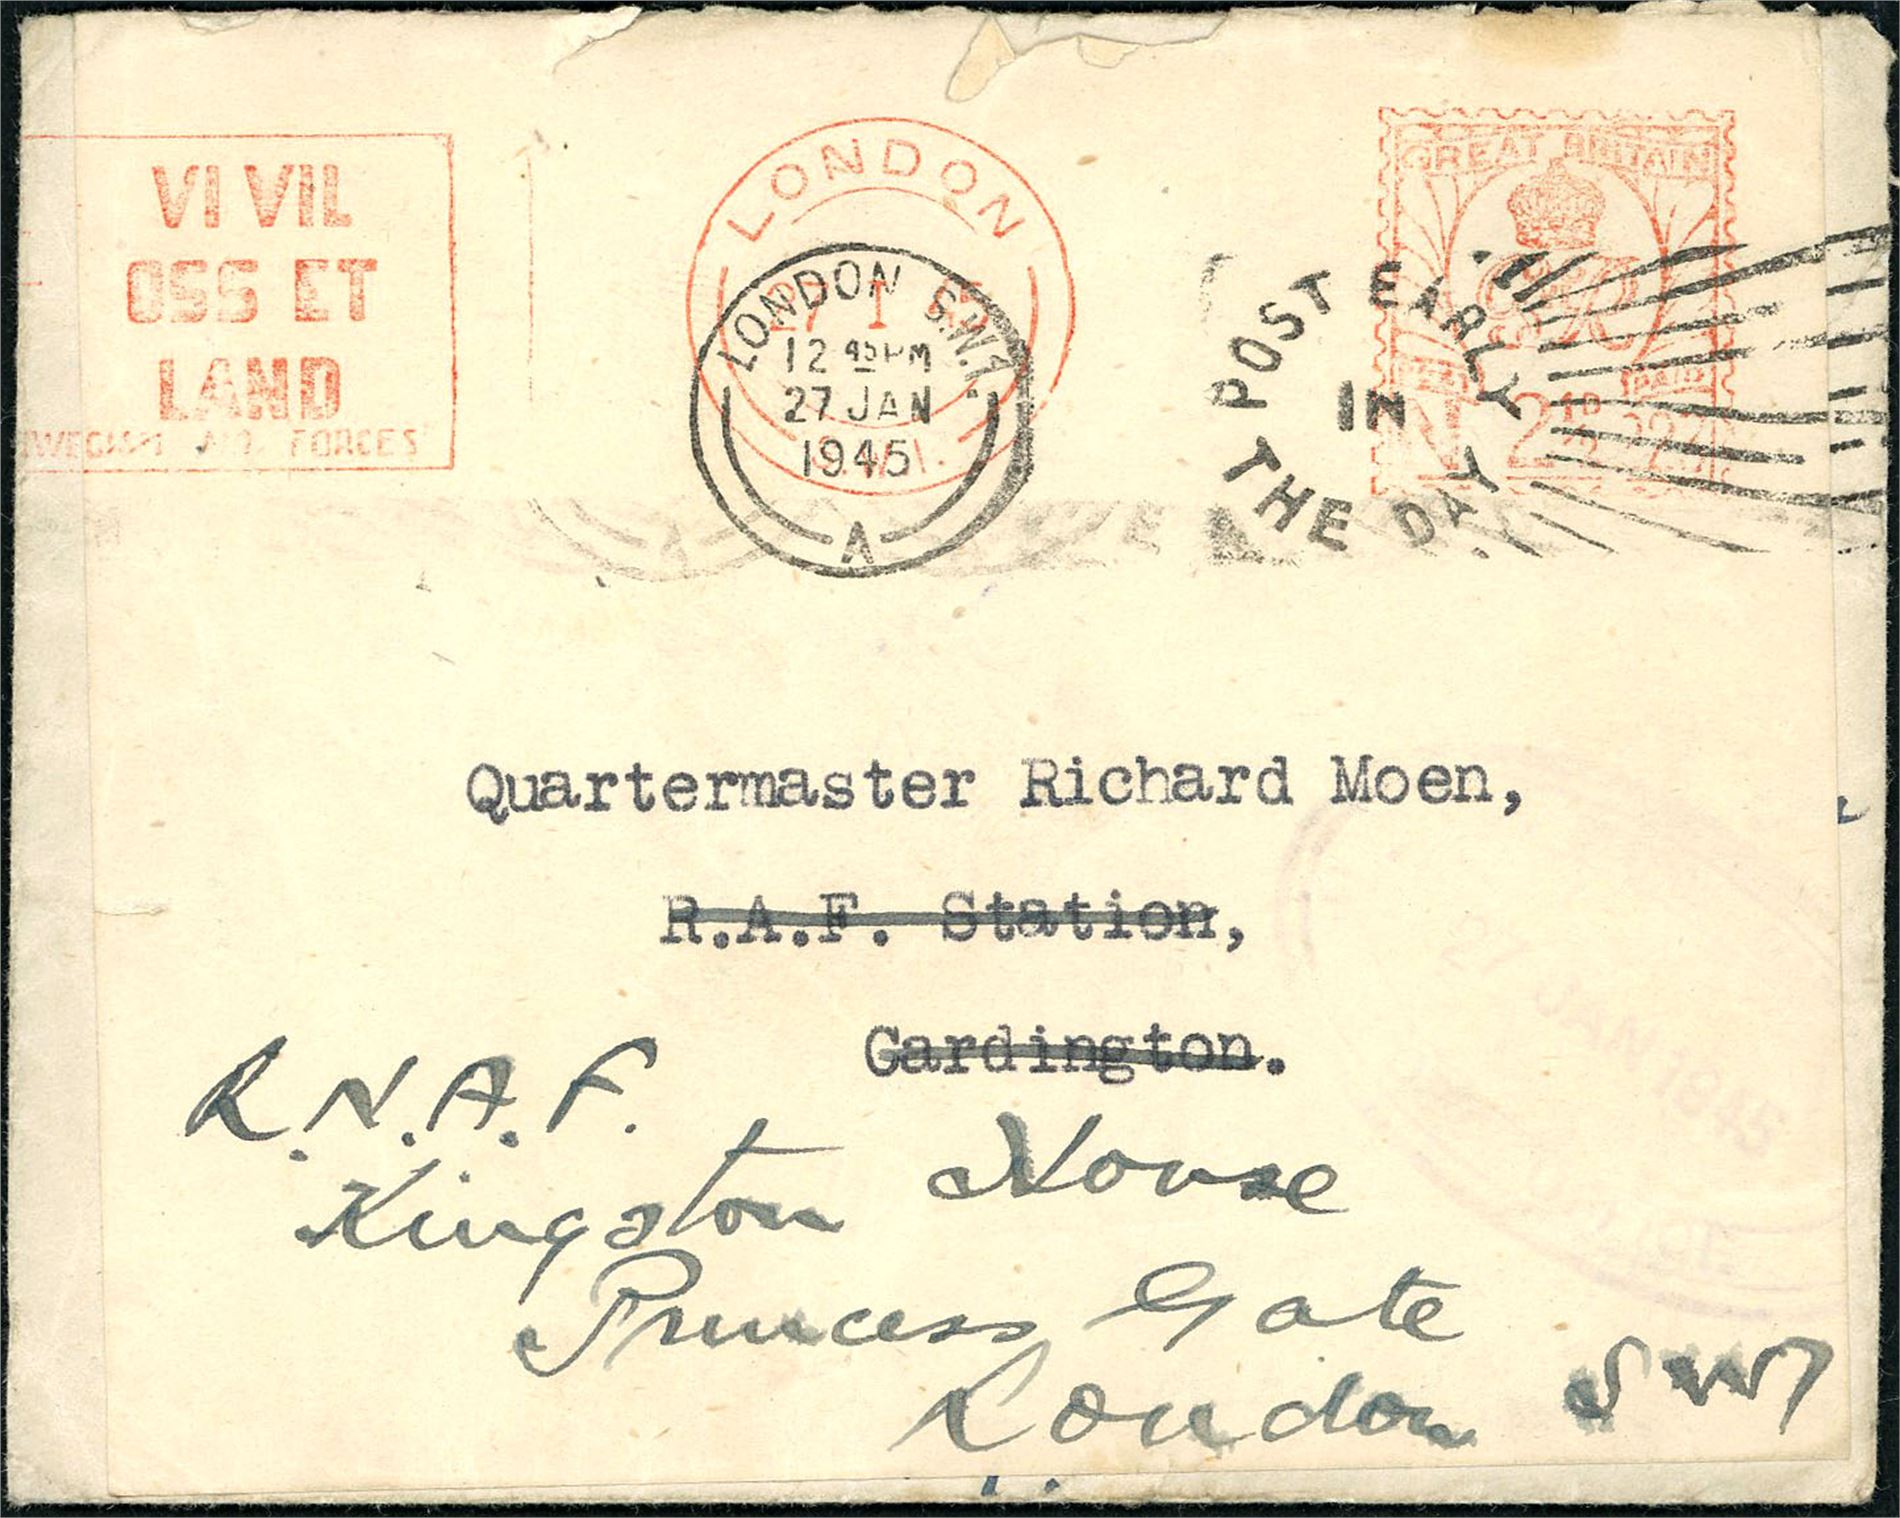 VI VIL
OSS ET
LAND
WEGIAN AIR FORCES
LONDON
27 I 45
S.W.1.
LONDON S.W.1.
12 45 PM
27 JAN
1945
A
POST EARLY
IN
THE DAY
GREAT BRITAIN
GR
PAID
2½D
Quartermaster Richard Moen,
R.A.F. Station,
Cardington.
R.N.A.F.
Kingston House
Princess Gate
London SW7